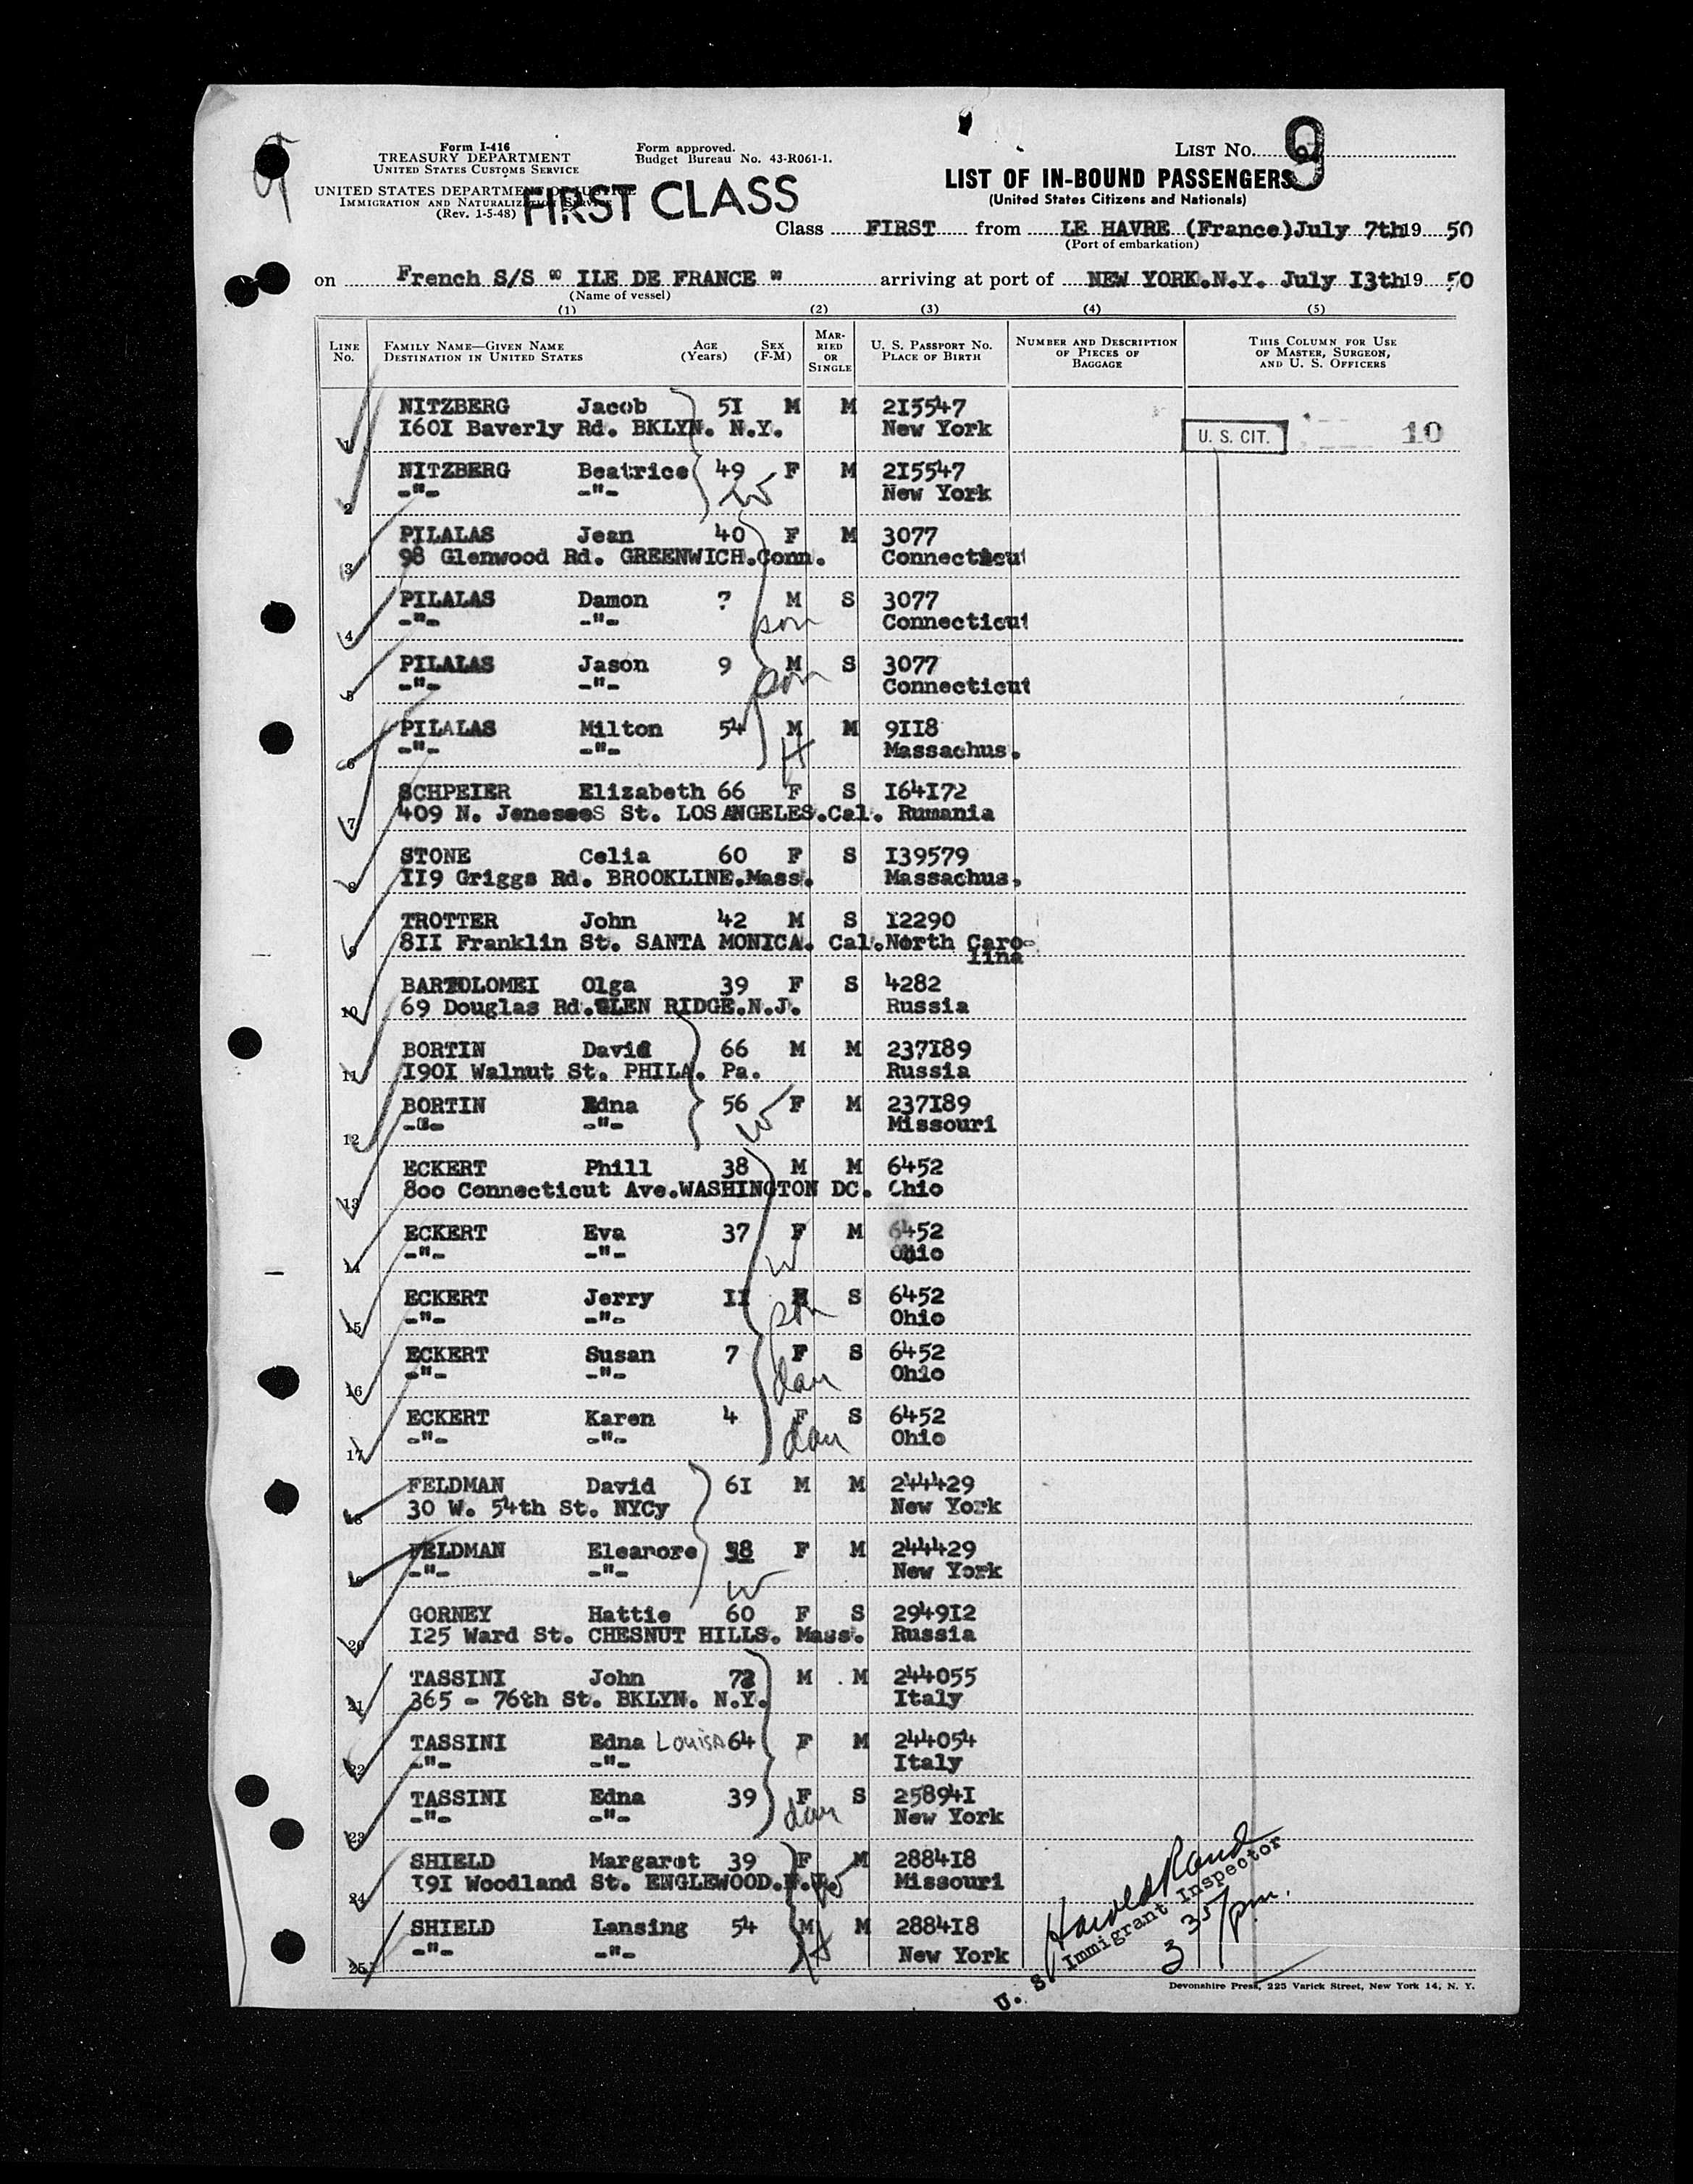 9
Form I-416
TREASURY DEPARTMENT
UNITED STATES CUSTOMS SERVICE
UNITED STATES DEPARTMENT OF JUSTICE
IMMIGRATION AND NATURALIZATION SERVICE
(Rev. 1-5-48)
Form approved.
Budget Bureau No. 43-R061-1.
FIRST CLASS
LIST NO. 9
LIST OF IN-BOUND PASSENGERS
(United States Citizens and Nationals)
Class FIRST from LE HAVRE (France) July 7th 19 50
(Port of embarkation)
on French S/S " ILE DE FRANCE " arriving at port of NEW YORK.N.Y. July I3th 19 50
(Name of vessel)
(1) (2) (3) (4) (5)
LINE No. FAMILY NAME—GIVEN NAME DESTINATION IN UNITED STATES AGE (Years) SEX (F-M) MARRIED OR SINGLE U. S. PASSPORT NO. PLACE OF BIRTH NUMBER AND DESCRIPTION OF PIECES OF BAGGAGE THIS COLUMN FOR USE OF MASTER, SURGEON, AND U. S. OFFICERS
NITZBERG Jacob 5I M M 2I5547
1 I60I Baverly Rd. BKLYN. N.Y. New York U. S. CIT. 10
NITZBERG Beatrice 49 F M 2I5547
2 -"- -"- W New York
PILALAS Jean 40 F M 3077
3 98 Glenwood Rd. GREENWICH.Conn. Connecticut
PILALAS Damon ? M S 3077
4 -"- -"- son Connecticut
PILALAS Jason 9 M S 3077
5 -"- -"- son Connecticut
PILALAS Milton 54 M M 9II8
6 -"- -"- H Massachus.
SCHPEIER Elizabeth 66 F S I64I72
7 409 N. JeneseeS St. LOS ANGELES.Cal. Rumania
STONE Celia 60 F S I39579
8 II9 Griggs Rd. BROOKLINE.Mass. Massachus.
TROTTER John 42 M S I2290
9 8II Franklin St. SANTA MONICA. Cal. North Caro-
lina
BARTOLOMEI Olga 39 F S 4282
10 69 Douglas Rd.GLEN RIDGE.N.J. Russia
BORTIN David 66 M M 237I89
11 I90I Walnut St. PHILA. Pa. Russia
BORTIN Edna 56 F M 237I89
12 -"- -"- W Missouri
ECKERT Phill 38 M M 6452
13 8oo Connecticut Ave.WASHINGTON DC. Ohio
ECKERT Eva 37 F M 6452
14 -"- -"- W Ohio
ECKERT Jerry II M S 6452
15 -"- -"- son Ohio
ECKERT Susan 7 F S 6452
16 -"- -"- dau Ohio
ECKERT Karen 4 F S 6452
17 -"- -"- dau Ohio
FELDMAN David 6I M M 244429
18 30 W. 54th St. NYCy New York
FELDMAN Eleanore 98 F M 244429
19 -"- -"- W New York
GORNEY Hattie 60 F S 2949I2
20 I25 Ward St. CHESNUT HILLS. Mass. Russia
TASSINI John M M 244055
21 365 - 76th St. BKLYN. N.Y. Italy
TASSINI Edna Louisa 64 F M 244054
22 -"- -"- Italy
TASSINI Edna 39 F S 25894I
23 -"- -"- dau New York
SHIELD Margaret 39 F M 2884I8
24 I9I Woodland St. ENGLEWOOD.N.J. W Missouri
SHIELD Lansing 54 M M 2884I8
25 -"- -"- H New York
Harold Rand
U. S. Immigrant Inspector
3 35 pm.
Devonshire Press, 225 Varick Street, New York 14, N. Y.